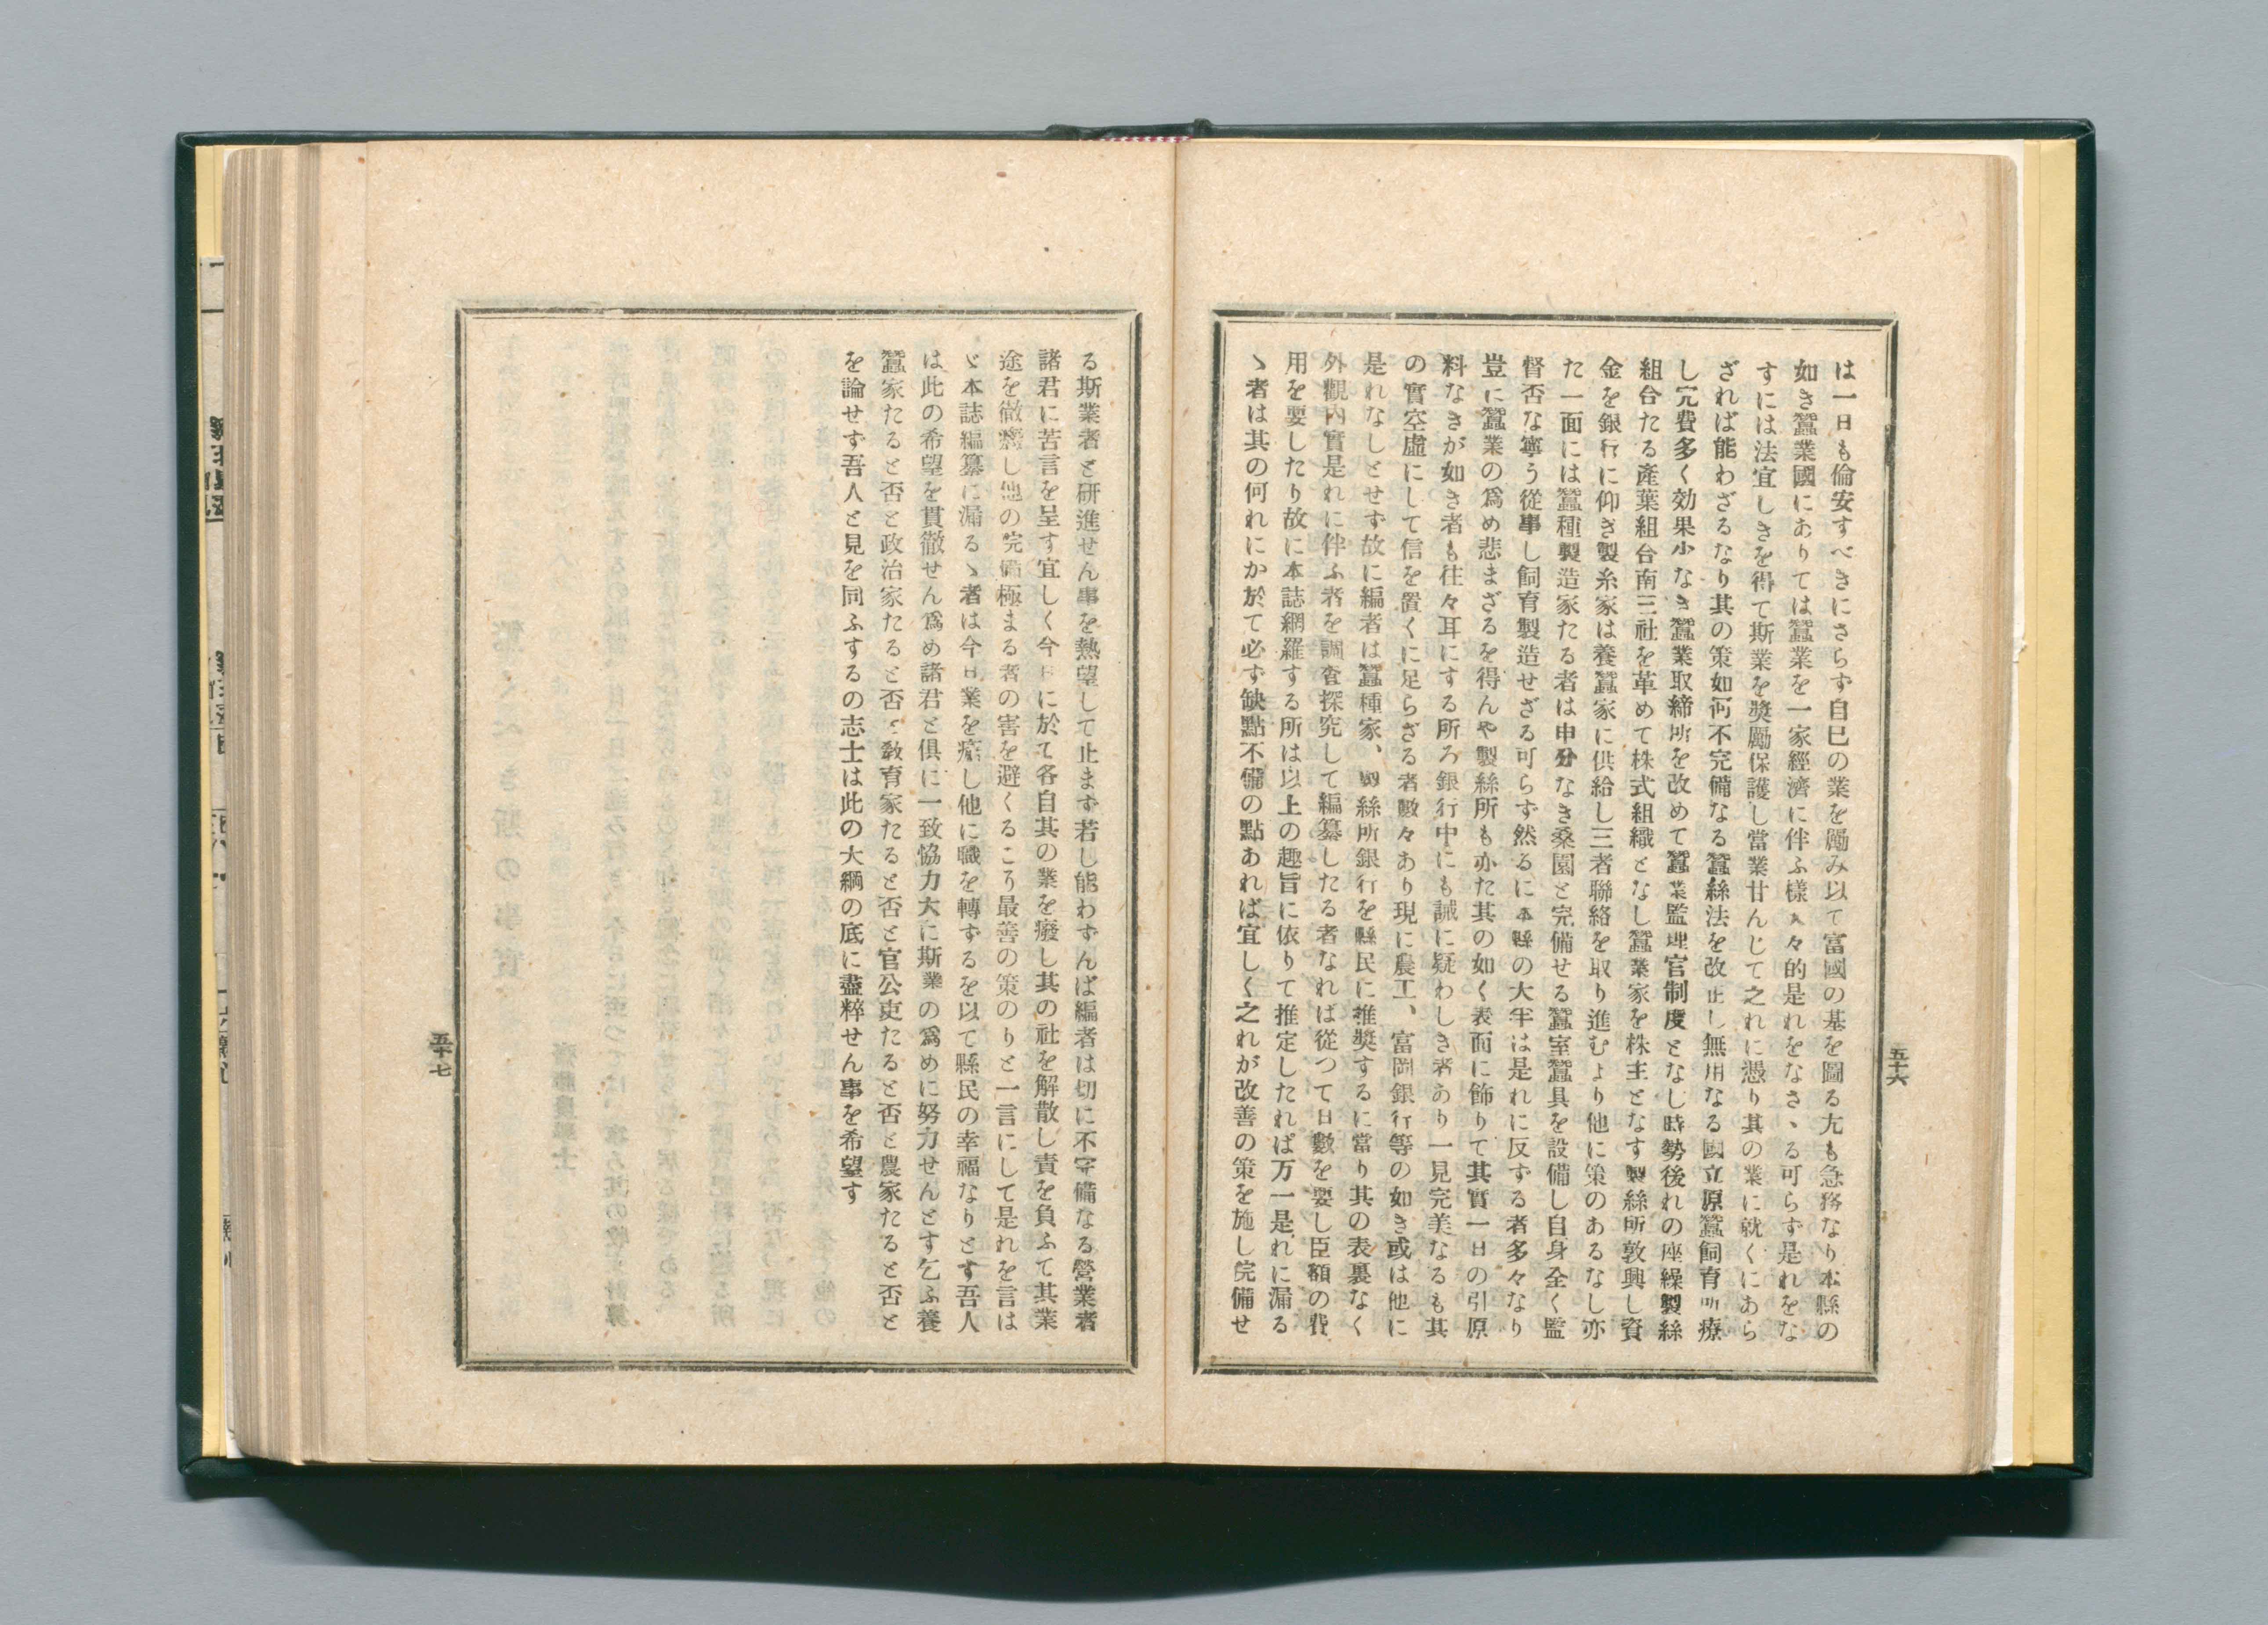 は一日も倫安すべきにさらず自巳の業を勵み以て富國の基を圖る尢も急務なり本縣の
如き蠶業國にありては蠶業を一家經濟に伴ふ樣人々的是れをなさゝる可らず是れをな
すには法宜しきを得て斯業を奬勵保護し當業甘んじて之れに憑り其の業に就くにあら
ざれば能わざるなり其の策如何不完備なる蠶絲法を改正し無用なる國立原蠶飼育所療
し冗費多く効果少なき蠶業取締所を改めて蠶業監理官制度となし時勢後れの座繰製絲
組台たる產葉組台南三社を革めて株式組織となし蠶業家を株主となす製絲所敦興し資
金を銀行に仰ぎ製糸家は養蠶家に供給し三者聯絡を取り進むより他に策のあるなし亦
た一面には蠶種製造家たる者は申分なき桑園と完備せる蠶室蠶具を設備し自身全く監
督否な寧う從事し飼育製造せざる可らす然るに本縣の大半は是れに反ずる者多々なり
豈に蠶業の爲め悲まざるを得んや製絲所も亦た其の如く表面に飾りて其實一日の引原
料なきが如き者も往々耳にする所ろ銀行中にも誠に疑わしき者あり一見完美なるも其
の實空虛にして信を置くに足らざる者數々あり現に農工、富岡銀行等の如き或は他に
是れなしとせず故に編者は蠶種家、製絲所銀行を縣民に推奬するに當り其の表裏なく
外觀內實是れに伴ふ者を調査探究して編纂したる者なれば從つて日數を要し臣額の費
用を要したり故に本誌網羅する所は以上の趣旨に依りて推定したれば万一是れに漏る
ゝ者は其の何れにか於て必ず缺點不備の點あれば宜しく之れが改善の策を施し完備せ
五十六
る斯業者と研進せん事を熱望して止まず若し能わずんば編者は切に不完備なる營業者
諸君に苦言を呈す宜しく今日に於て各自其の業を廢し其の社を解散し責を負ふて其業
途を徹廢し他の完備極まる者の害を避くるこり最善の策のりと一言にして是れを言は
ゞ本誌編纂に漏るゝ者は今日業を癈し他に職を轉ずるを以て縣民の幸福なりとす吾人
は此の希望を貫徹せん爲め諸君と俱に一致協力大に斯業の爲めに努力せんとす乞ふ養
蠶家たると否と政治家たると否と敎育家たると否と官公吏たると否と農家たると否と
を論せず吾人と見を同ふするの志士は此の大綱の底に盡粹せん事を希望す
五十七